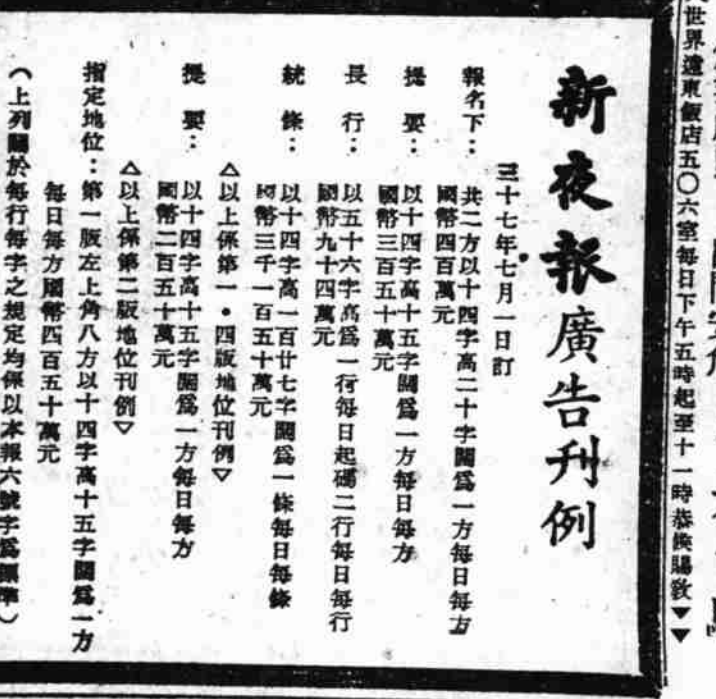 世界遠東飯店五〇六室每日下午五時起至十一時恭候賜教▼▼
新夜報廣告刊例
三十七年七月一日訂
報名下：共二方以十四字高二十字闊爲一方每日每方
國幣四百萬元
提要：以十四字高十五字闊爲一方每日每方
國幣三百五十萬元
長行：以五十六字高爲一行每日起碼二行每日每行
國幣九十四萬元
統條：以十四字高一百廿七字闊爲一條每日每條
國幣三千一百五十萬元
△以上係第一・四版地位刊例▽
提要：以十四字高十五字闊爲一方每日每方
國幣二百五十萬元
△以上係第二版地位刊例▽
指定地位：第一版左上角八方以十四字高十五字闊爲一方
每日每方國幣四百五十萬元
（上列關於每行每字之規定均係以本報六號字爲標準）